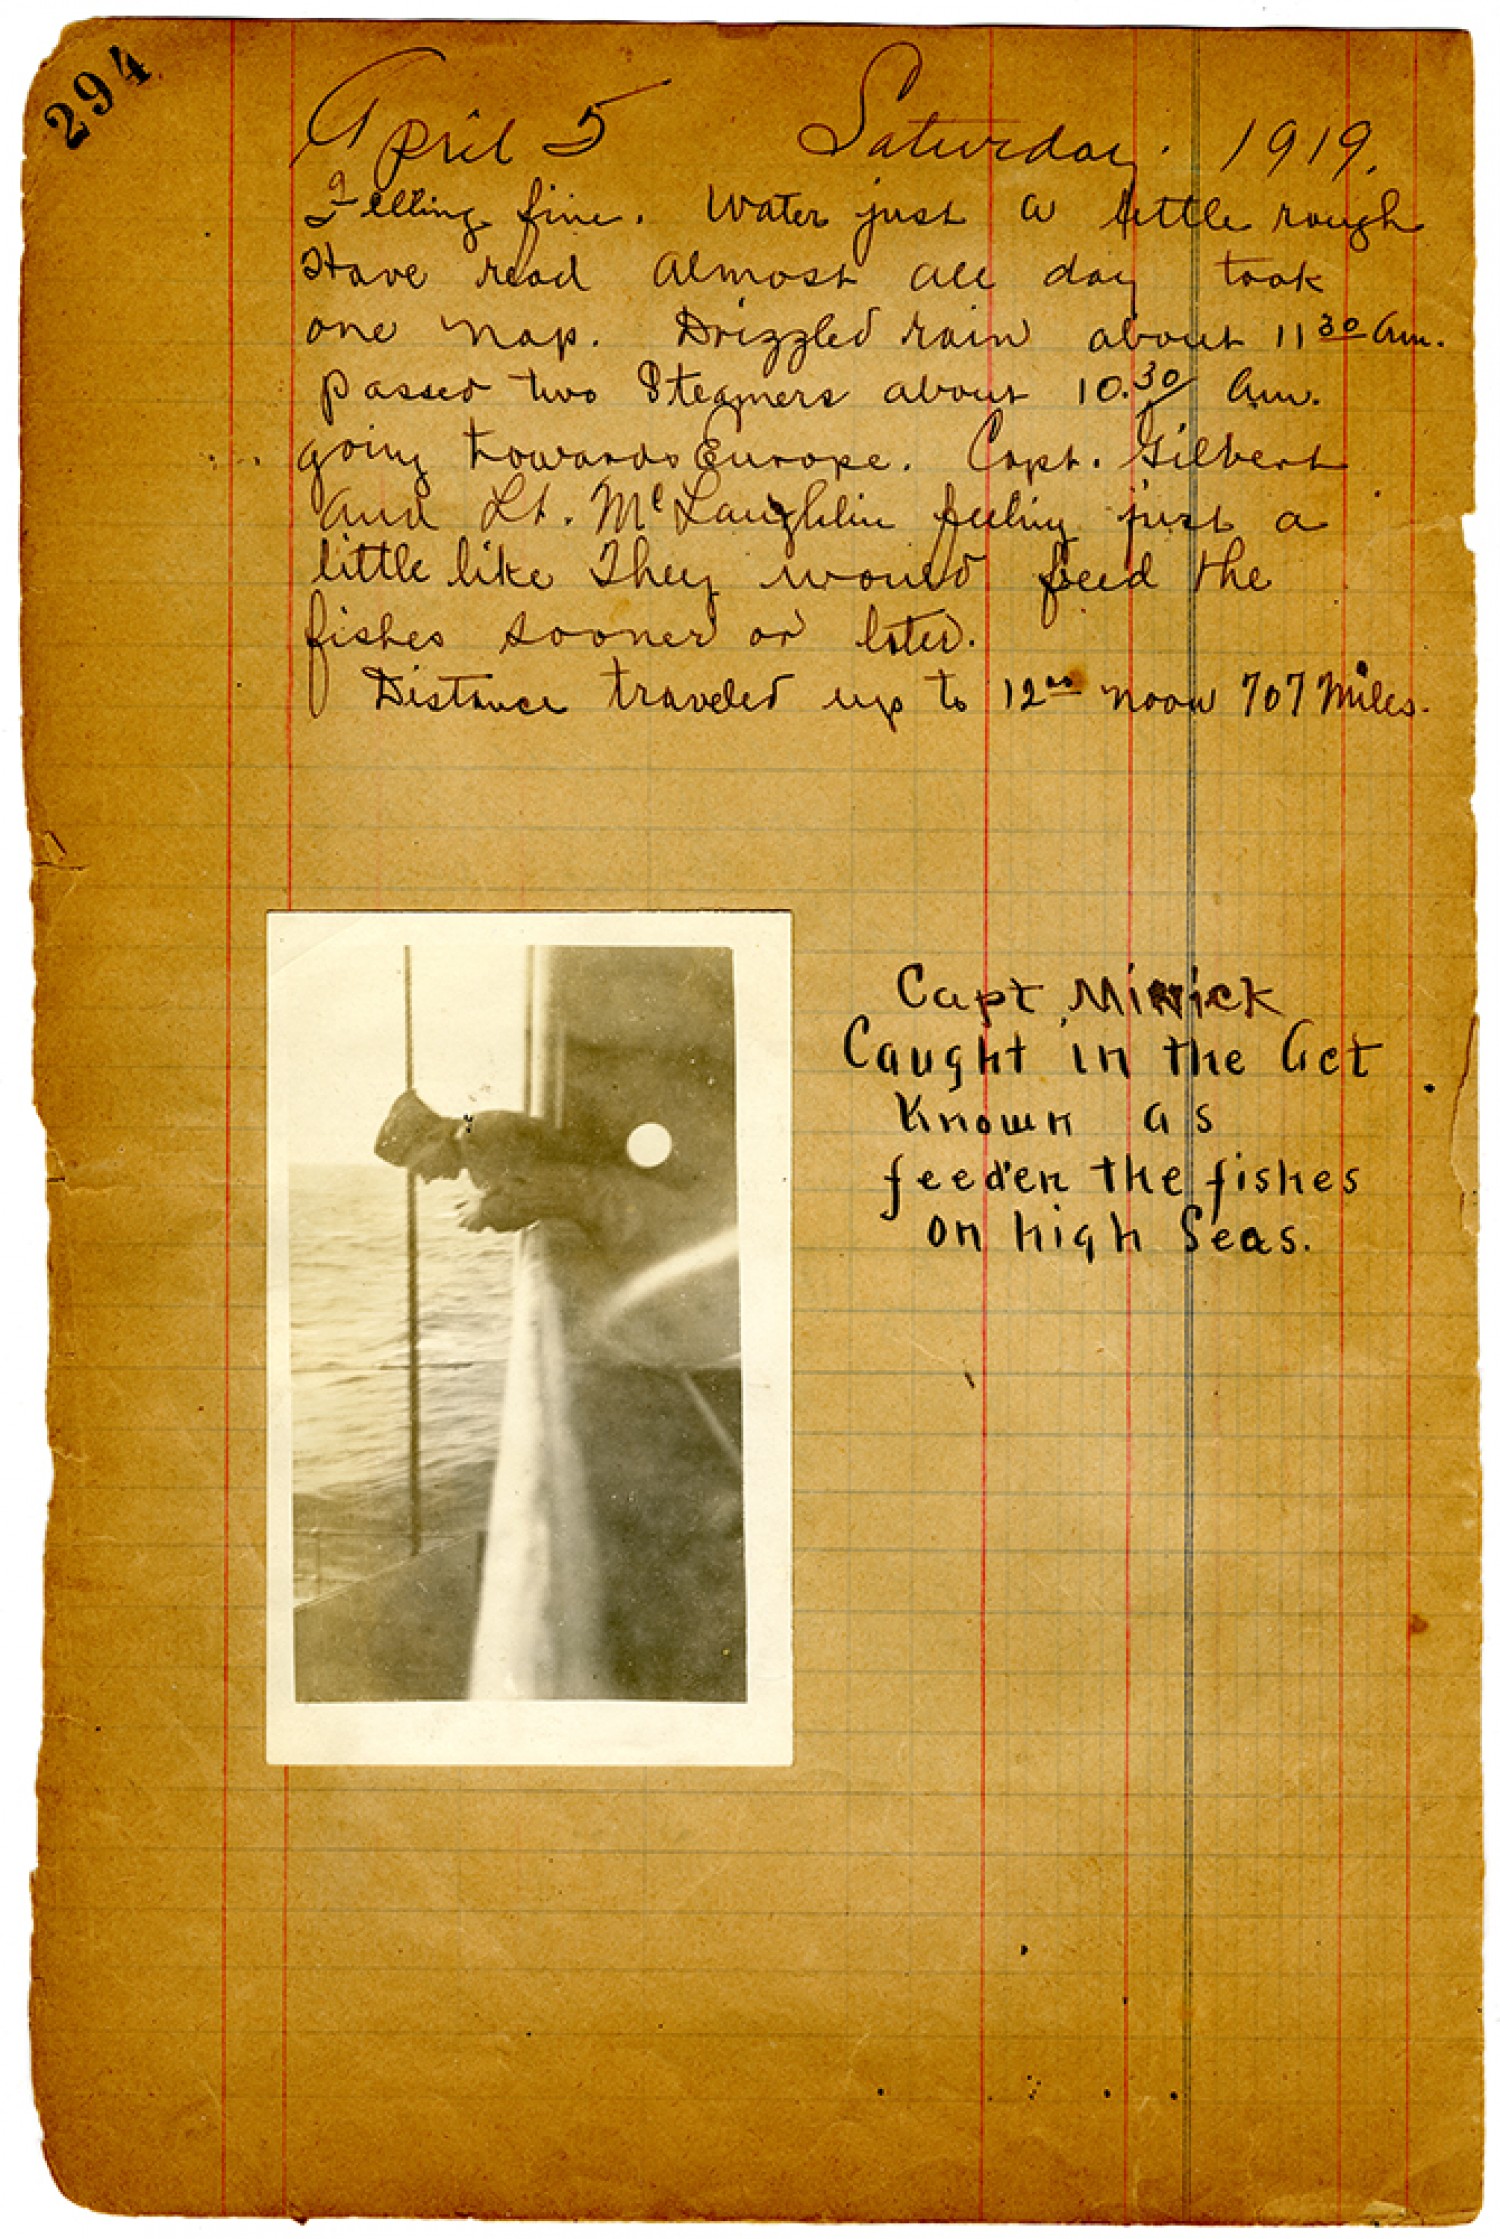 294
April 5 Saturday. 1919.
Felling fine. Water just a little rough
Have read almost all day took
one nap. Drizzled rain about 11 30 am.
passed two Steamers about 10.30 am.
going towards Europe. Capt. Gilbert
and Lt. McLaughlin feeling just a
little like They would feed the
fishes sooner or later.
Distance traveled up to 12 00 noon 707 Miles.
Capt. Minick
Caught in the Act
Known as
feed'en the fishes
on high Seas.